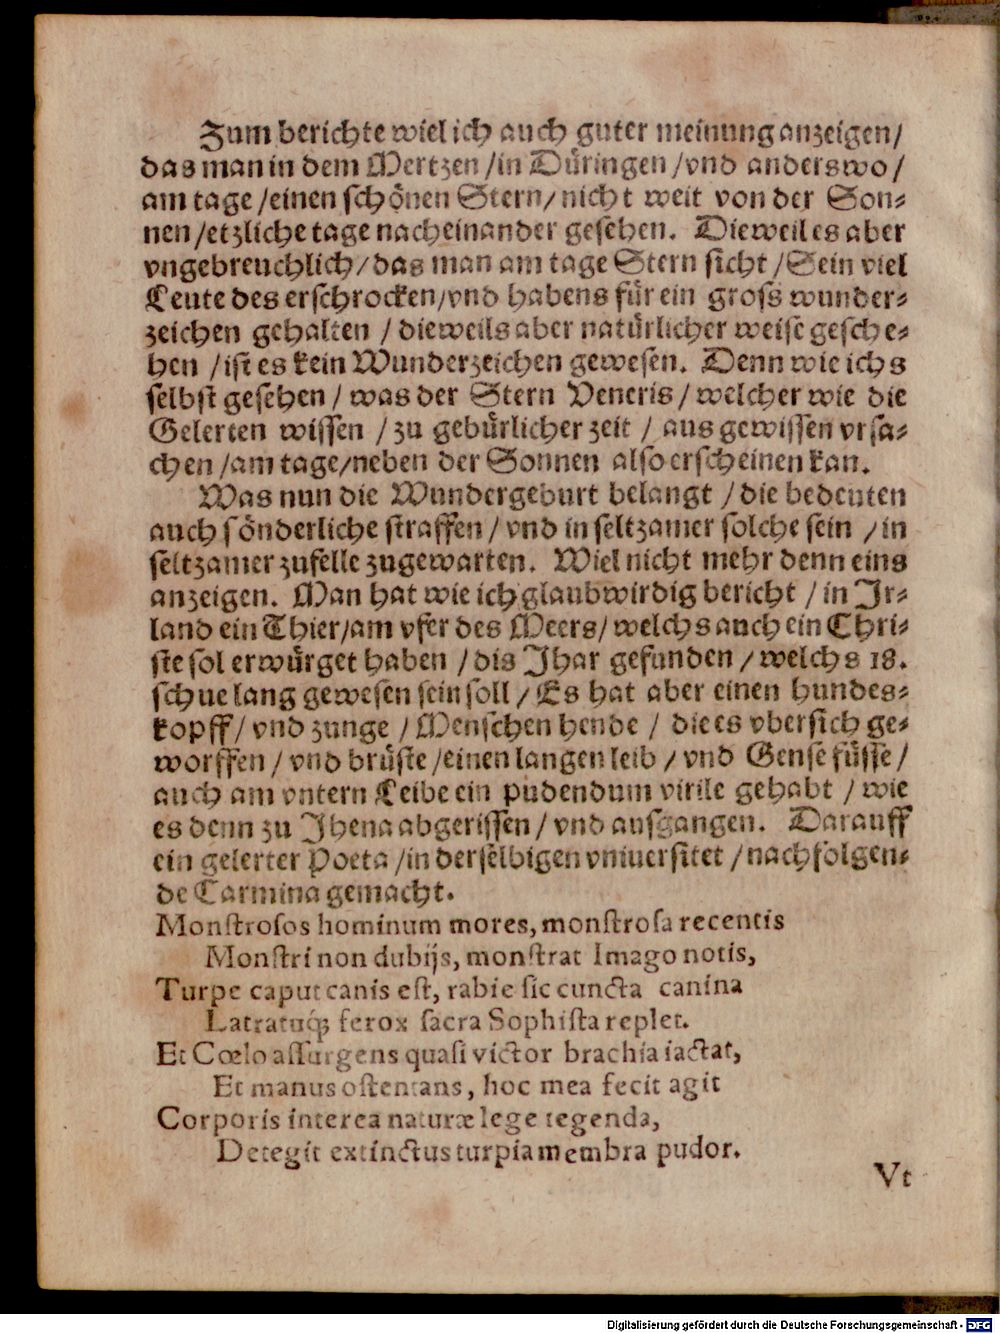 Zum berichte wiel ich auch guter meinung anzeigen/
das man in dem Mertzen/in Düringen/vnd anderswo/
am tage/einen schönen Stern/nicht weit von der Son-
nen/etzliche tage nacheinander gesehen. Dieweil es aber
vngebreuchlich/das man am tage Stern sicht/Sein viel
Leute des erschrocken/vnd habens für ein gross wunder-
zeichen gehalten / dieweils aber natürlicher weise gesche-
hen / ist es kein Wunderzeichen gewesen. Denn wie ichs
selbst gesehen / was der Stern Veneris / welcher wie die
Gelerten wissen / zu gebürlicher zeit / aus gewissen vrsa-
chen/am tage/neben der Sonnen also erscheinen kan.
Was nun die Wundergeburt belangt / die bedeuten
auch sönderliche straffen / vnd in seltzamer solche sein / in
seltzamer zufelle zugewarten. Wiel nicht mehr denn eins
anzeigen. Man hat wie ich glaubwirdig bericht / in Jr-
land ein Thier/am vfer des Meers/welchs auch ein Chri-
ste sol erwürget haben / dis Jhar gefunden / welchs 18.
schue lang gewesen sein soll / Es hat aber einen hundes-
kopff/ vnd zunge / Menschen hende / die es vbersich ge-
worffen / vnd brüste/einen langen leib / vnd Gense füsse /
auch am vntern Leibe ein pudendum virile gehabt / wie
es denn zu Jhena abgerissen / vnd ausgangen. Darauff
ein gelerter Poeta /in derselbigen vniuersitet / nachfolgen-
de Carmina gemacht.
Monstrosos hominum mores, monstrosa recentis
Monstri non dubijs, monstrat Imago notis,
Turpe caput canis est, rabie sic cuncta canina
Latratuq́; ferox sacra Sophista replet.
Et Cœlo assurgens quasi victor brachia iactat,
Et manus ostentans, hoc mea fecit agit
Corporis interea naturæ lege tegenda,
Detegit extinctus turpia membra pudor.
Vt
Digitalisierung gefördert durch die Deutsche Forschungsgemeinschaft - DFG